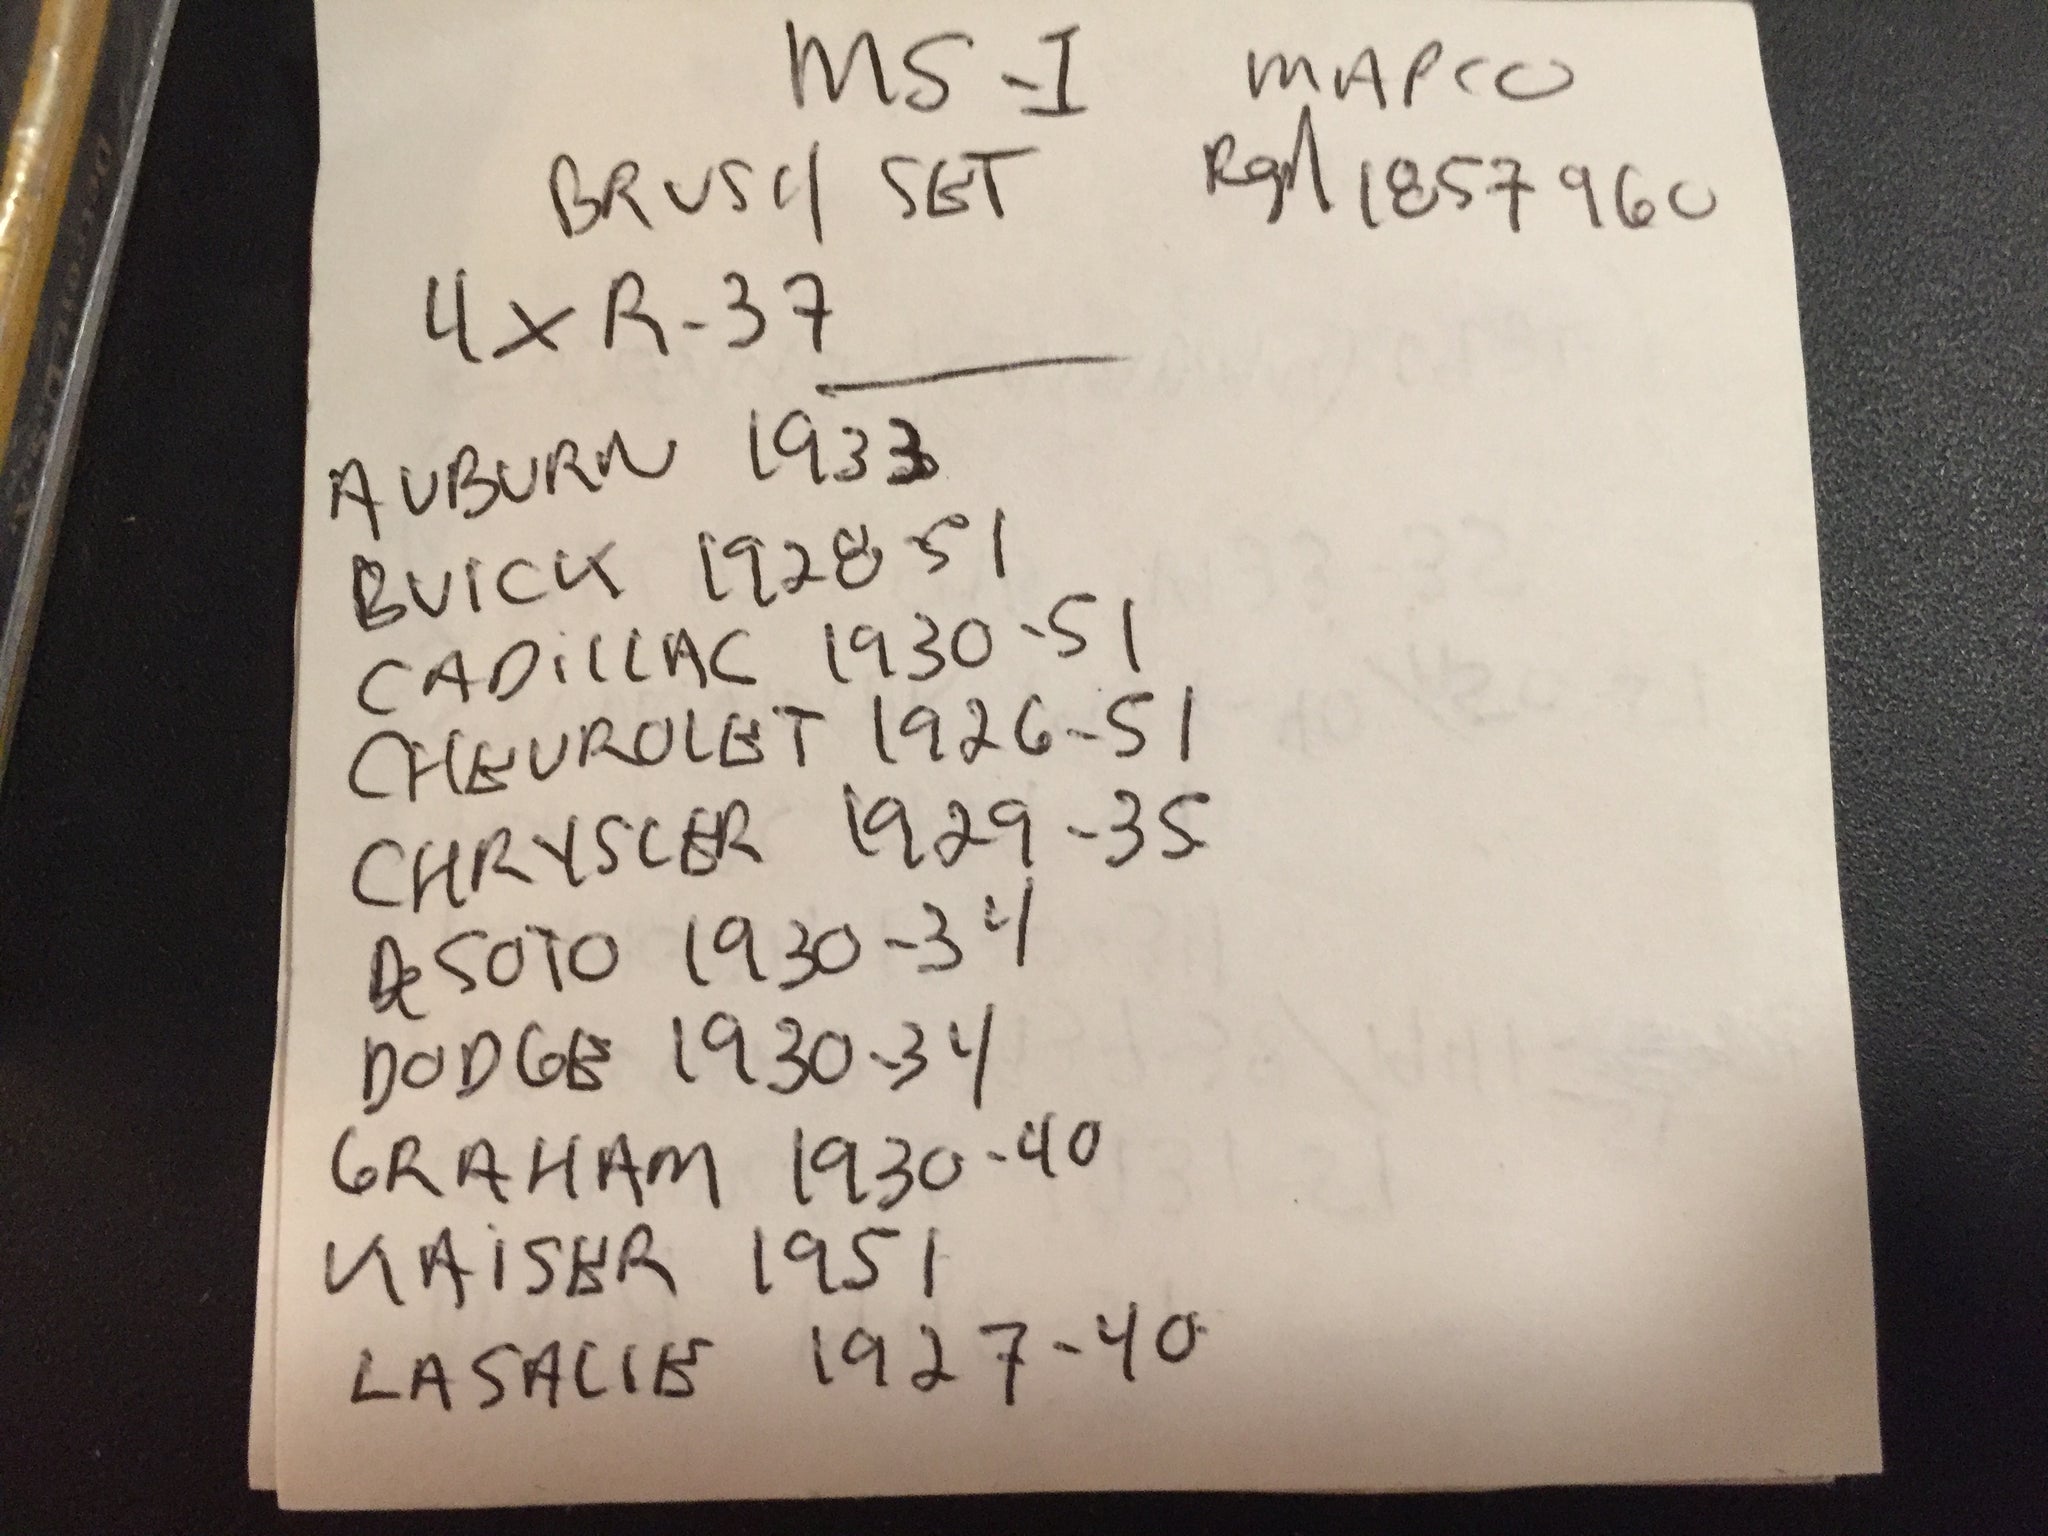 MS-I MAPCO
BRUSH SET Repl 1857960
4xR-37
AUBURN 1933
BUICK 1928-51
CADiLLAC 1930-51
CHEVROLET 1926-51
CHRYSLER 1929-35
DeSOTO 1930-34
DODGE 1930-34
GRAHAM 1930-40
KAiSER 1951
LASALLE 1927-40